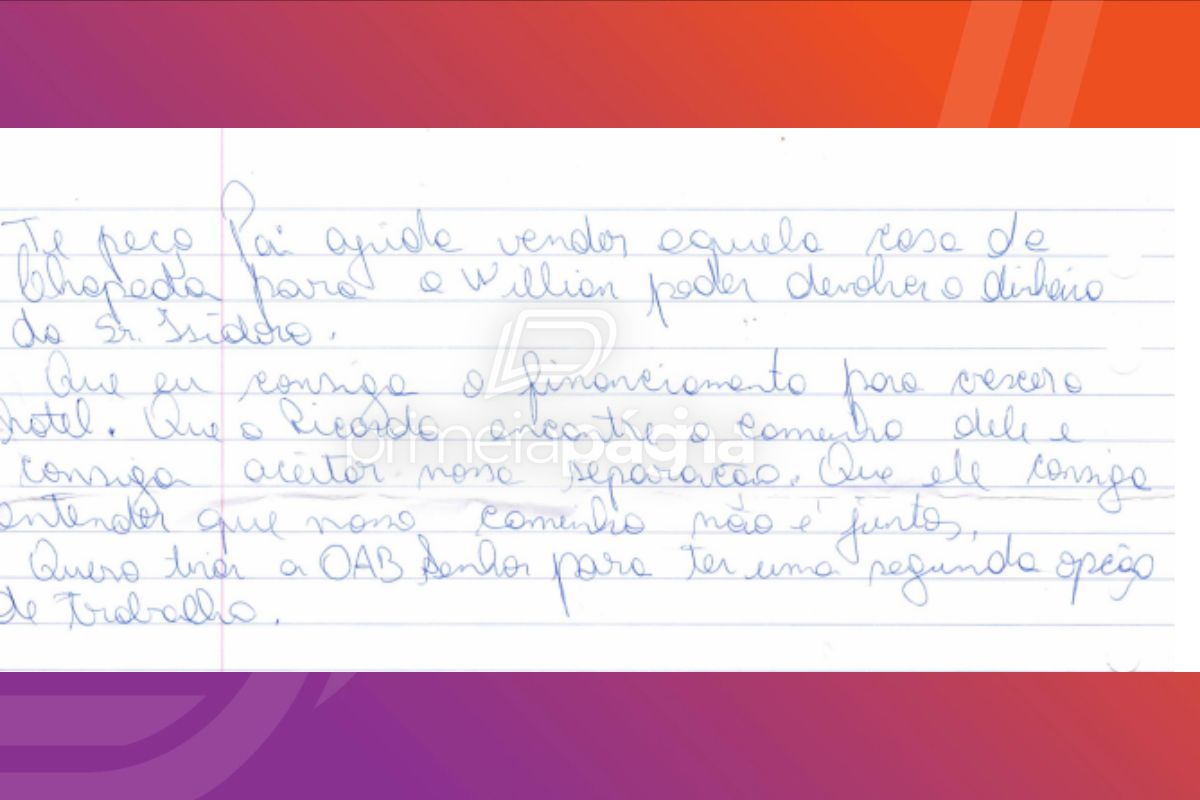 Te peço Pai ajuda vender aquela casa da
Chapada para o Willian poder devolver o dinheiro
do Sr. Isidoro.
Que eu consiga o financiamento para o
hotel. Que o Ricardo encontre o caminho dele e
consiga aceitar nossa separação. Que ele consiga
entender que nosso caminho não é juntos.
Quero tirar a OAB Senhor para ter uma segunda opção
de trabalho.
primeirapágina